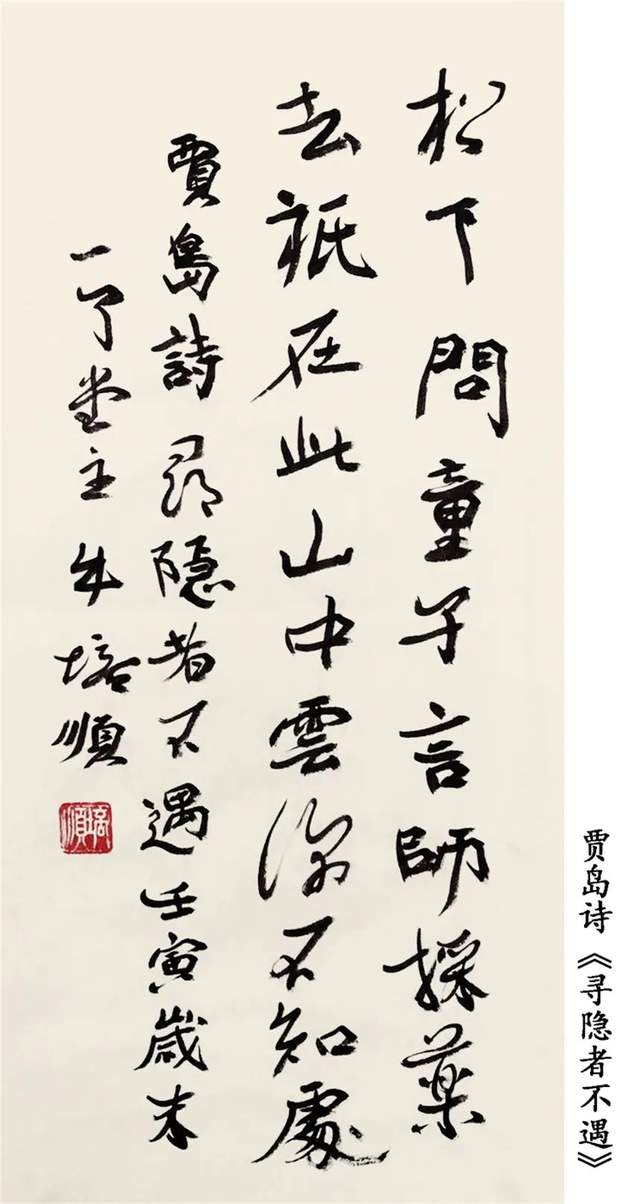 松下問童子言師採藥
去祇在此山中雲深不知處
賈島詩尋隱者不遇壬寅歲末
一了堂主朱培順
培順
贾岛诗《寻隐者不遇》